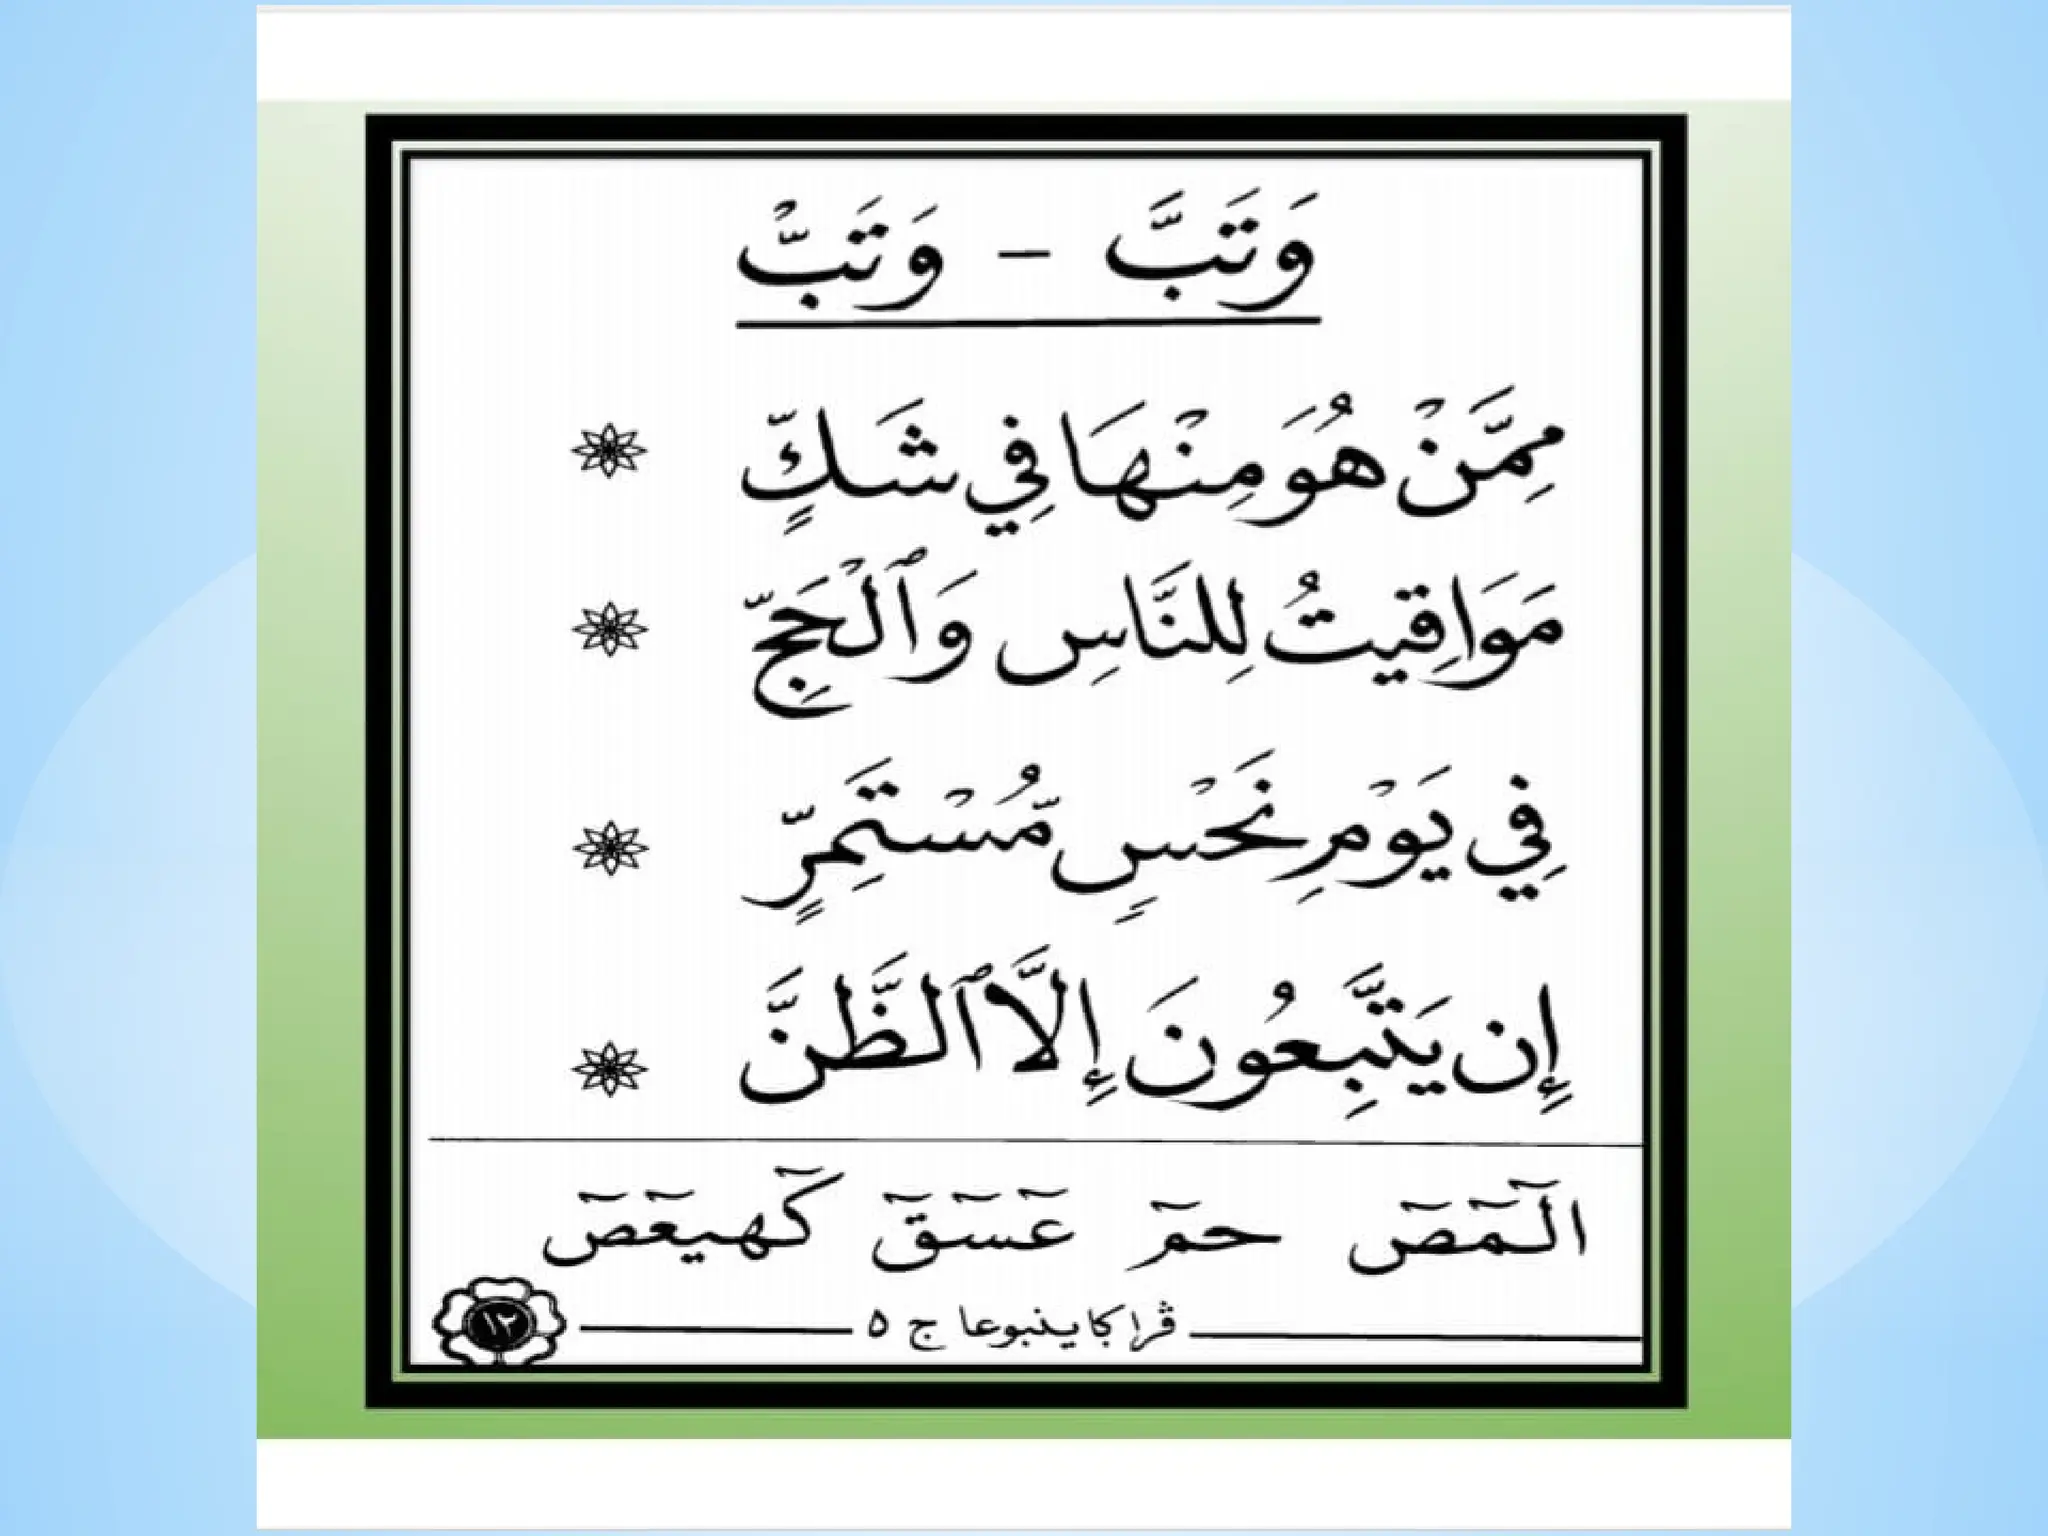 وَتَبَّ – وَتَبّْ
مِمَّنْ هُوَ مِنْهَا فِي شَكٍّ
مَوَاقِيتُ لِلنَّاسِ وَٱلْحَجِّ
فِي يَوْمِ نَحْسٍ مُّسْتَمِرٍّ
إِن يَتَّبِعُونَ إِلَّا ٱلظَّنَّ
الٓمٓصٓ حمٓ عٓسٓقٓ كٓهيعٓصٓ
ڤراكتاينبوعا ج ٥
١٢